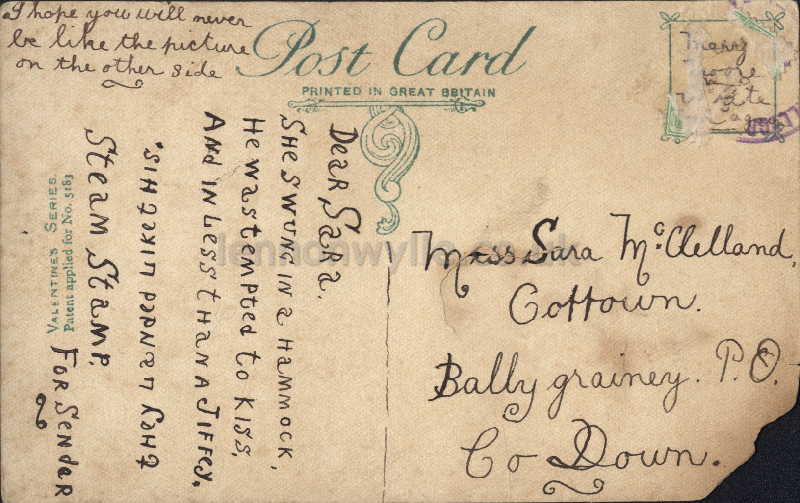 I hope you will never
be like the picture
on the other side
Post Card
PRINTED IN GREAT BRITAIN
Marry
write
VALENTINES SERIES.
Patent applied for No. 5183
Dear Sara,
She swung in a hammock,
He was tempted to kiss,
And in less than a Jiffey,
they landed like this"
Steam Stamp.
For Sender
Miss Sara McClelland,
Cottown.
Bally grainey. P.O.
Co Down.
lennonwylie.co.uk